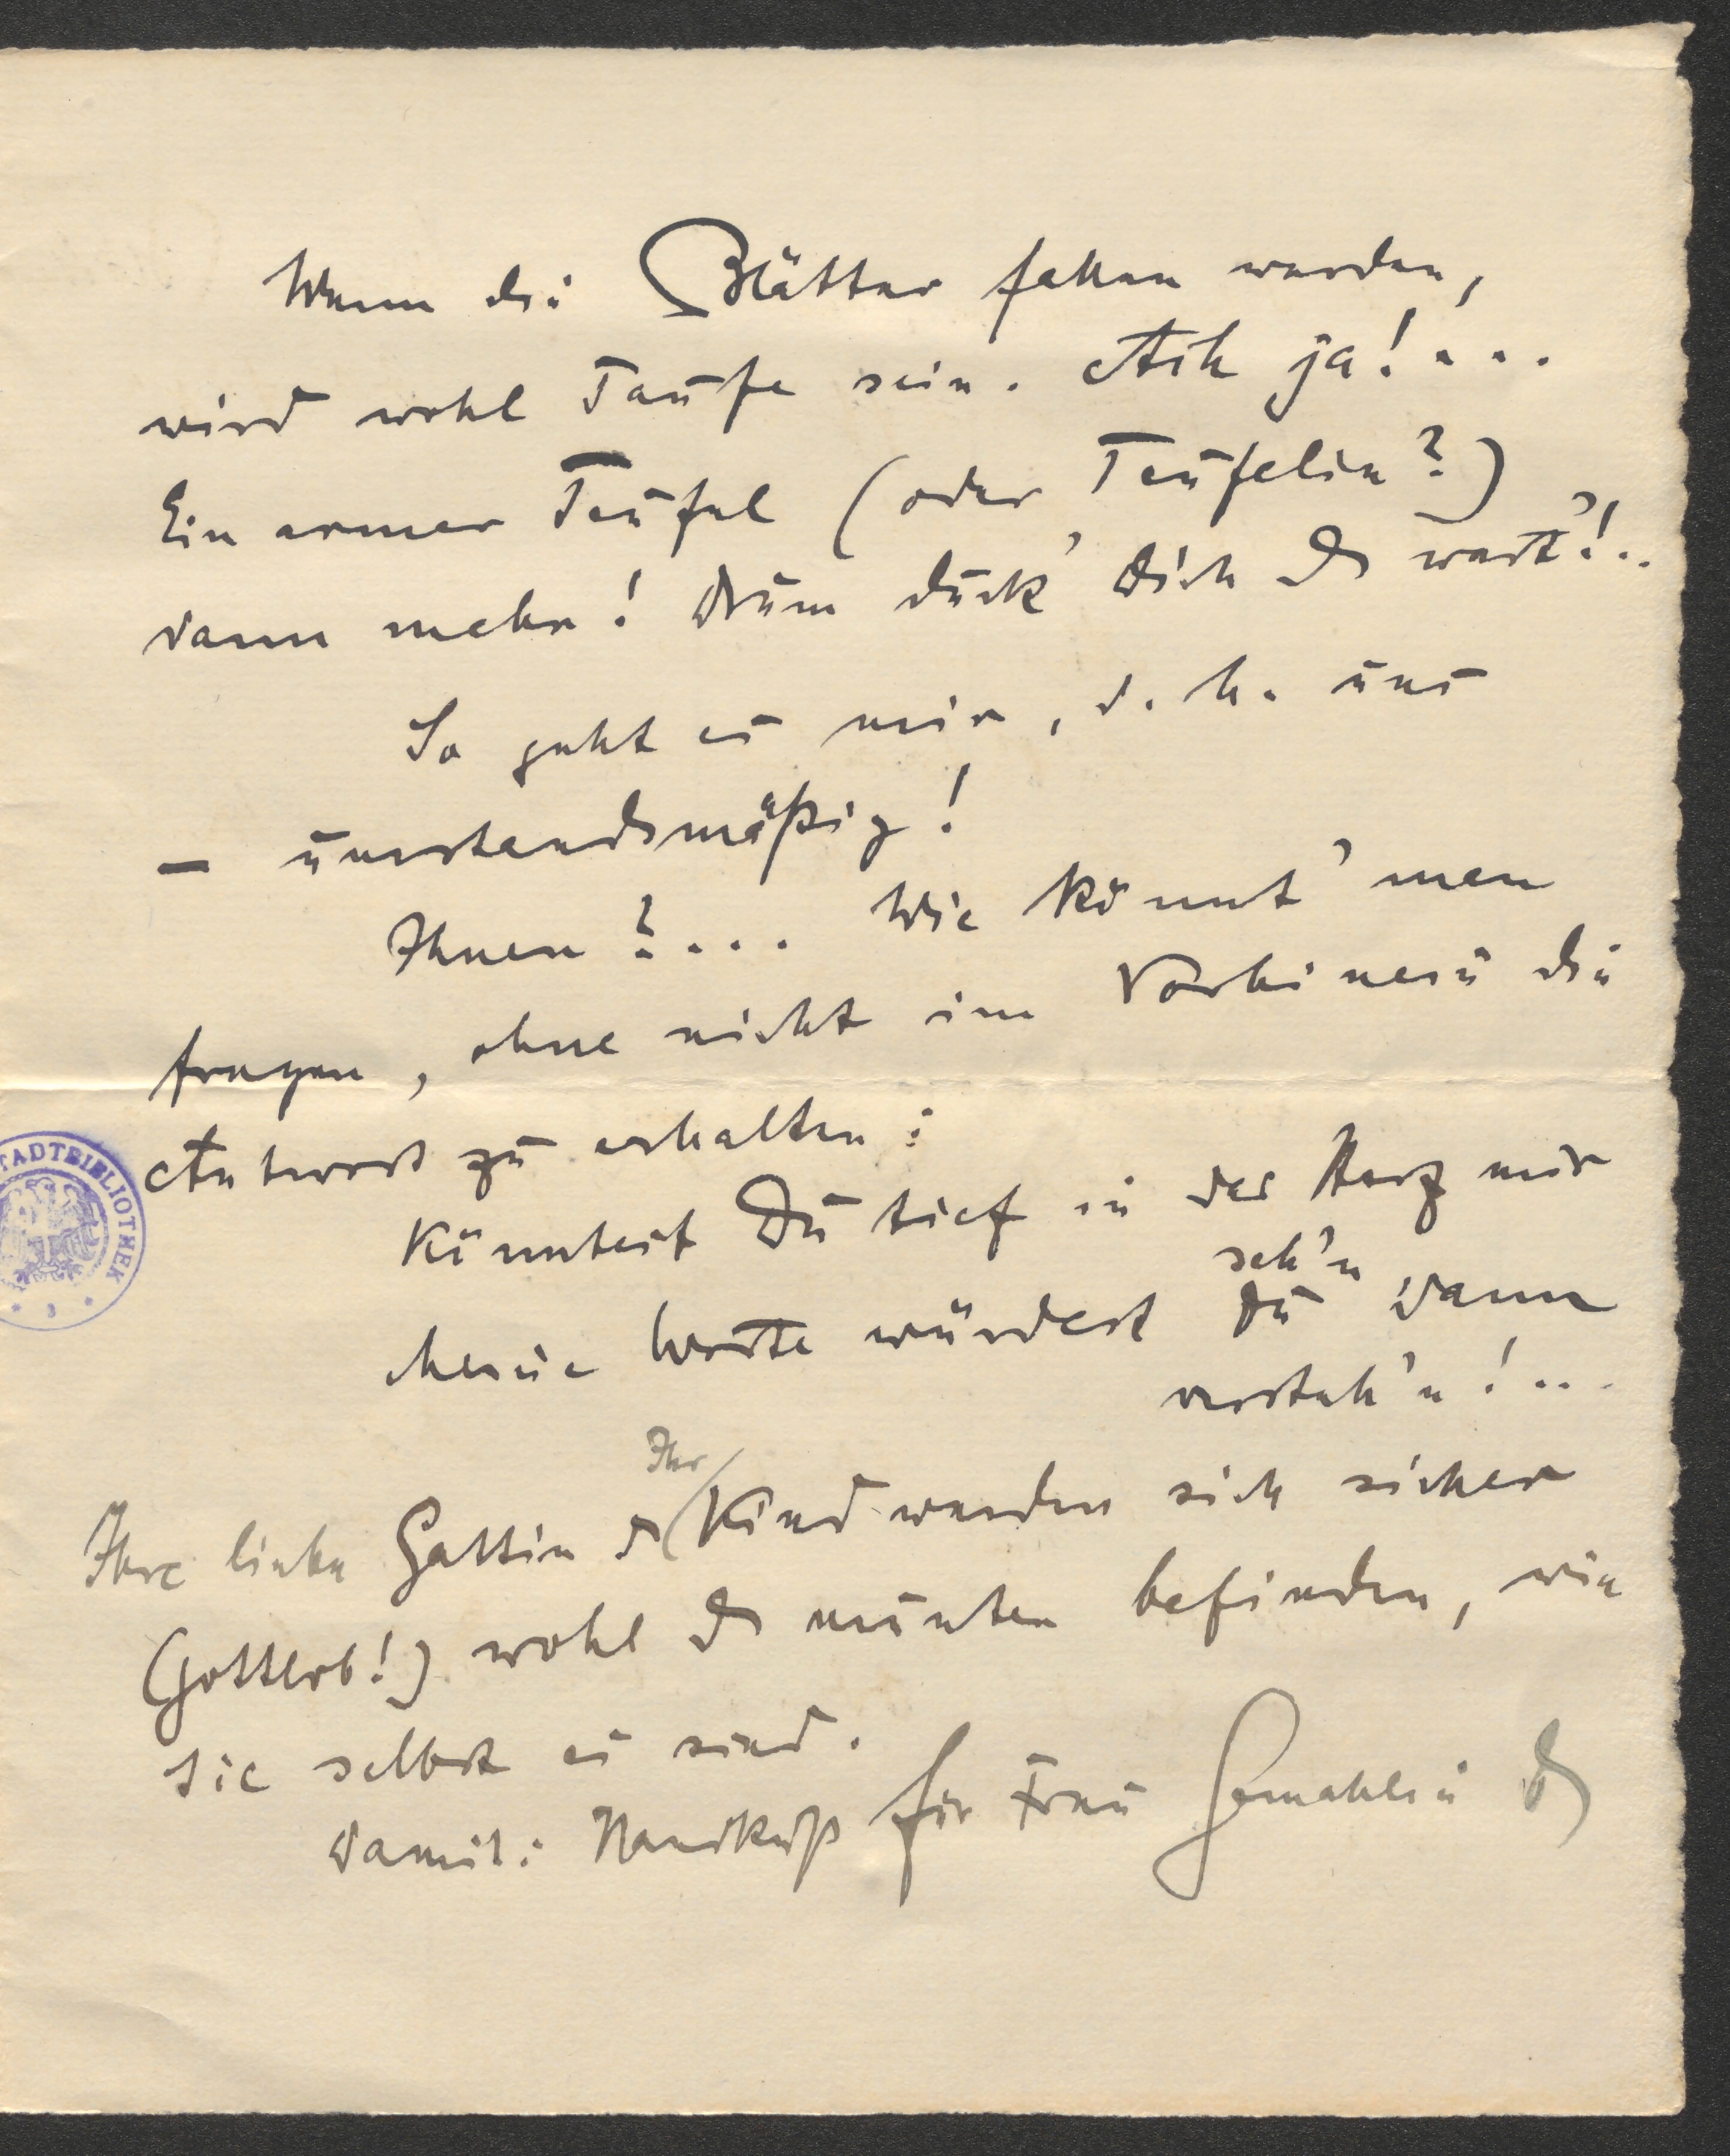 Wenn die Blätter fallen werden,
wird wohl Taufe sein. Ach ja!...
Ein armer Teufel (oder Teufelin?)
dann mehr! Drum duck' Dich & wart'!..
So geht es mir, d. h. uns
– unstandsmäßig!
Ihnen?... Wie könnt' man
fragen, ohne nicht im Vorhinein die
Antwort zu erhalten:
Könntest Du tief in das Herz mir
seh'n
Meine Worte würdest Du dann
versteh'n!...
Ihr
Ihre liebe Gattin & Kind werden sich sicher
(Gottlob!) wohl & munter befinden, wie
Sie selbst es sind.
Damit: Handkuß für Frau Gemahlin &
STADTBIBLIOTHEK
* 3 *